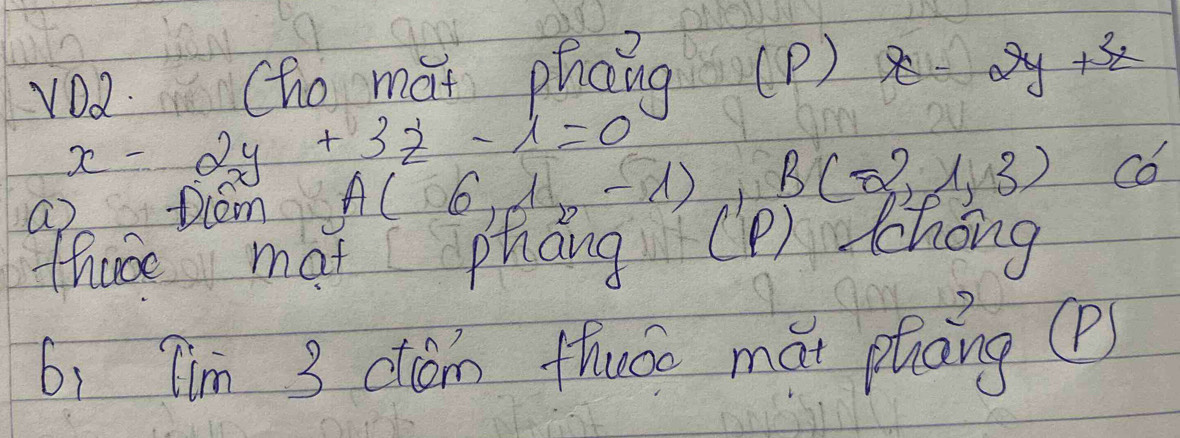 VD2. Cho mặt phẳng (P) x - 2y + 3z
x - 2y + 3z - 1 = 0
a) Điểm A( 6, 1, -1), B(-2, 1, 3) có
thuộc mặt phẳng (P) không
b, Tìm 3 điểm thuộc mặt phẳng (P)